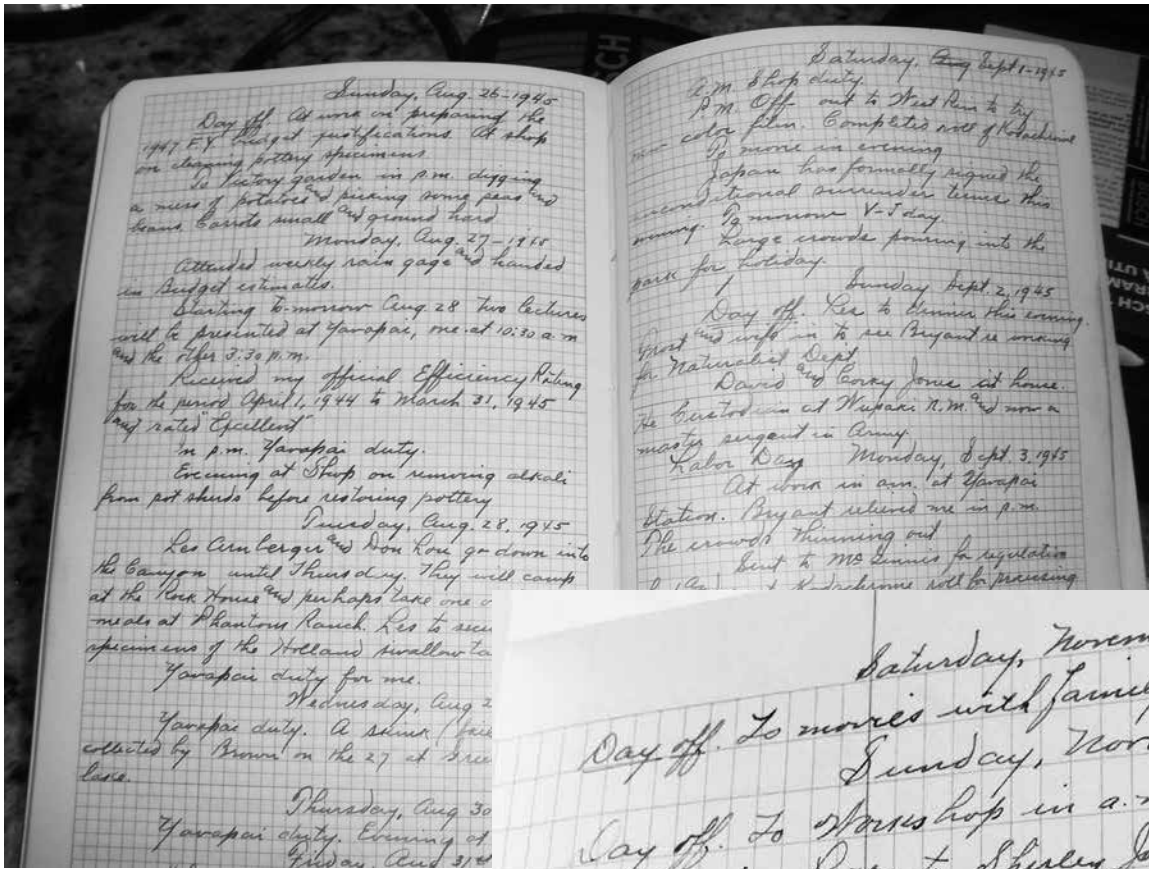 Sunday, Aug. 26-1945
Day off. At work on preparing the
1947 F.Y. budget justifications. At shop
on cleaning pottery specimens.
To Victory garden in p.m. digging
a mess of potatoes and picking some peas and
beans. Carrots small and ground hard
Monday, Aug. 27-1945
Attended weekly rain gage and handed
in Budget estimates.
Starting to-morrow Aug. 28 two lectures
will be presented at Yavapai, one at 10:30 a.m
and the other 3:30 p.m.
Received my official Efficiency Rating
for the period April 1, 1944 to March 31, 1945
and rated "Excellent"
In p.m. Yavapai duty.
Evening at Shop on removing alkali
from pot sherds before restoring pottery
Tuesday, Aug. 28, 1945
Les Arnberger and Don Low go down into
the Canyon until Thursday. They will camp
at the Rock House and perhaps take one
meals at Phantom Ranch. Les to
specimens of the Holland swallow
Yavapai duty for me.
Wednesday, Aug 2
Yavapai duty. A
collected by Brown on the 27 at
lake.
Thursday, Aug 30
Yavapai duty. Evening at
Friday, Aug 31
Saturday, Aug Sept 1-1945
A.M. Shop duty.
P.M. Off out to West Rim to try
new color film. Completed roll of Kodachrome
To movie in evening
Japan has formally signed the
unconditional surrender terms this
evening. To morrow V-J day.
Large crowds pouring into the
park for holiday.
Sunday Sept. 2, 1945
Day off. Les to dinner this evening.
and wife in to see Bryant re working
for Naturalist Dept.
David and Corky Jones at house.
He Custodian at Wupaki N.M. and now a
master sergent in Army.
Labor Day Monday, Sept. 3, 1945
At work in a.m. at Yavapai
Station. Bryant relieved me in p.m.
The crowds thinning out
Sent to McGinnis for regulation
Kodachrome roll for processing
Saturday, Novem
Day off. To movies with family
Sunday, Nov
Day off. To Workshop in a.m
to Shirley